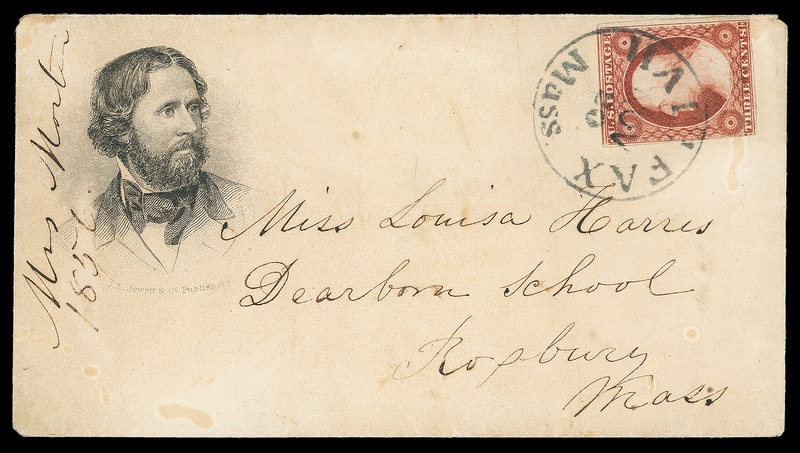 Mrs Morton
185
J. P. Jewett & Co. Publishers
U.S. POSTAGE
THREE CENTS
FAX
Mass.
Miss Louisa Harris
Dearborn School
Roxbury
Mass